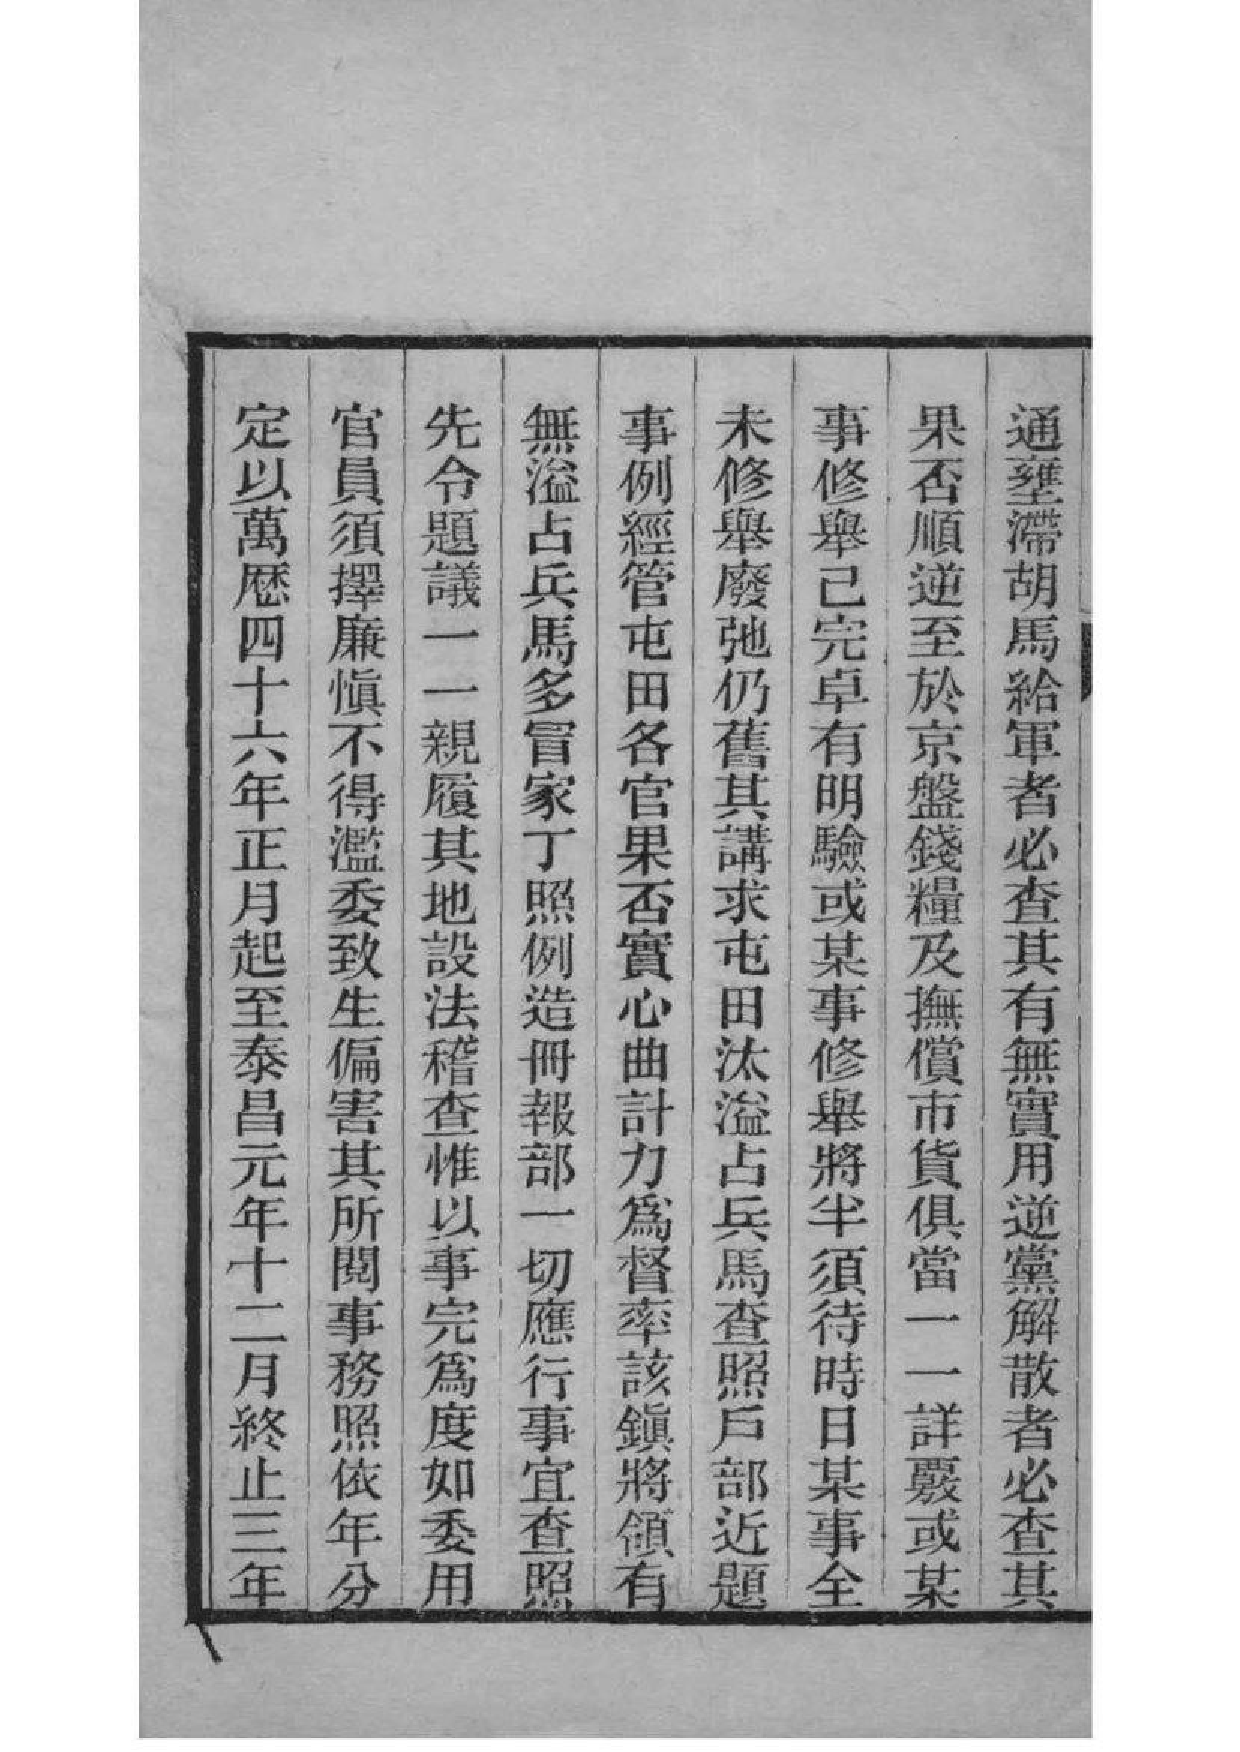 通壅滯胡馬給軍者必查其有無實用逆黨解散者必查其
果否順逆至於京盤錢糧及撫償市貨俱當一一詳覈或某
事修舉已完卓有明驗或某事修舉將半須待時日某事全
未修舉廢弛仍舊其講求屯田汰溢占兵馬查照戶部近題
事例經管屯田各官果否實心曲計力爲督率該鎭將領有
無溢占兵馬多冐家丁照例造冊報部一切應行事宜查照
先令題議一一親履其地設法稽查惟以事完爲度如委用
官員須擇廉愼不得濫委致生偏害其所閱事務照依年分
定以萬厯四十六年正月起至泰昌元年十二月終止三年